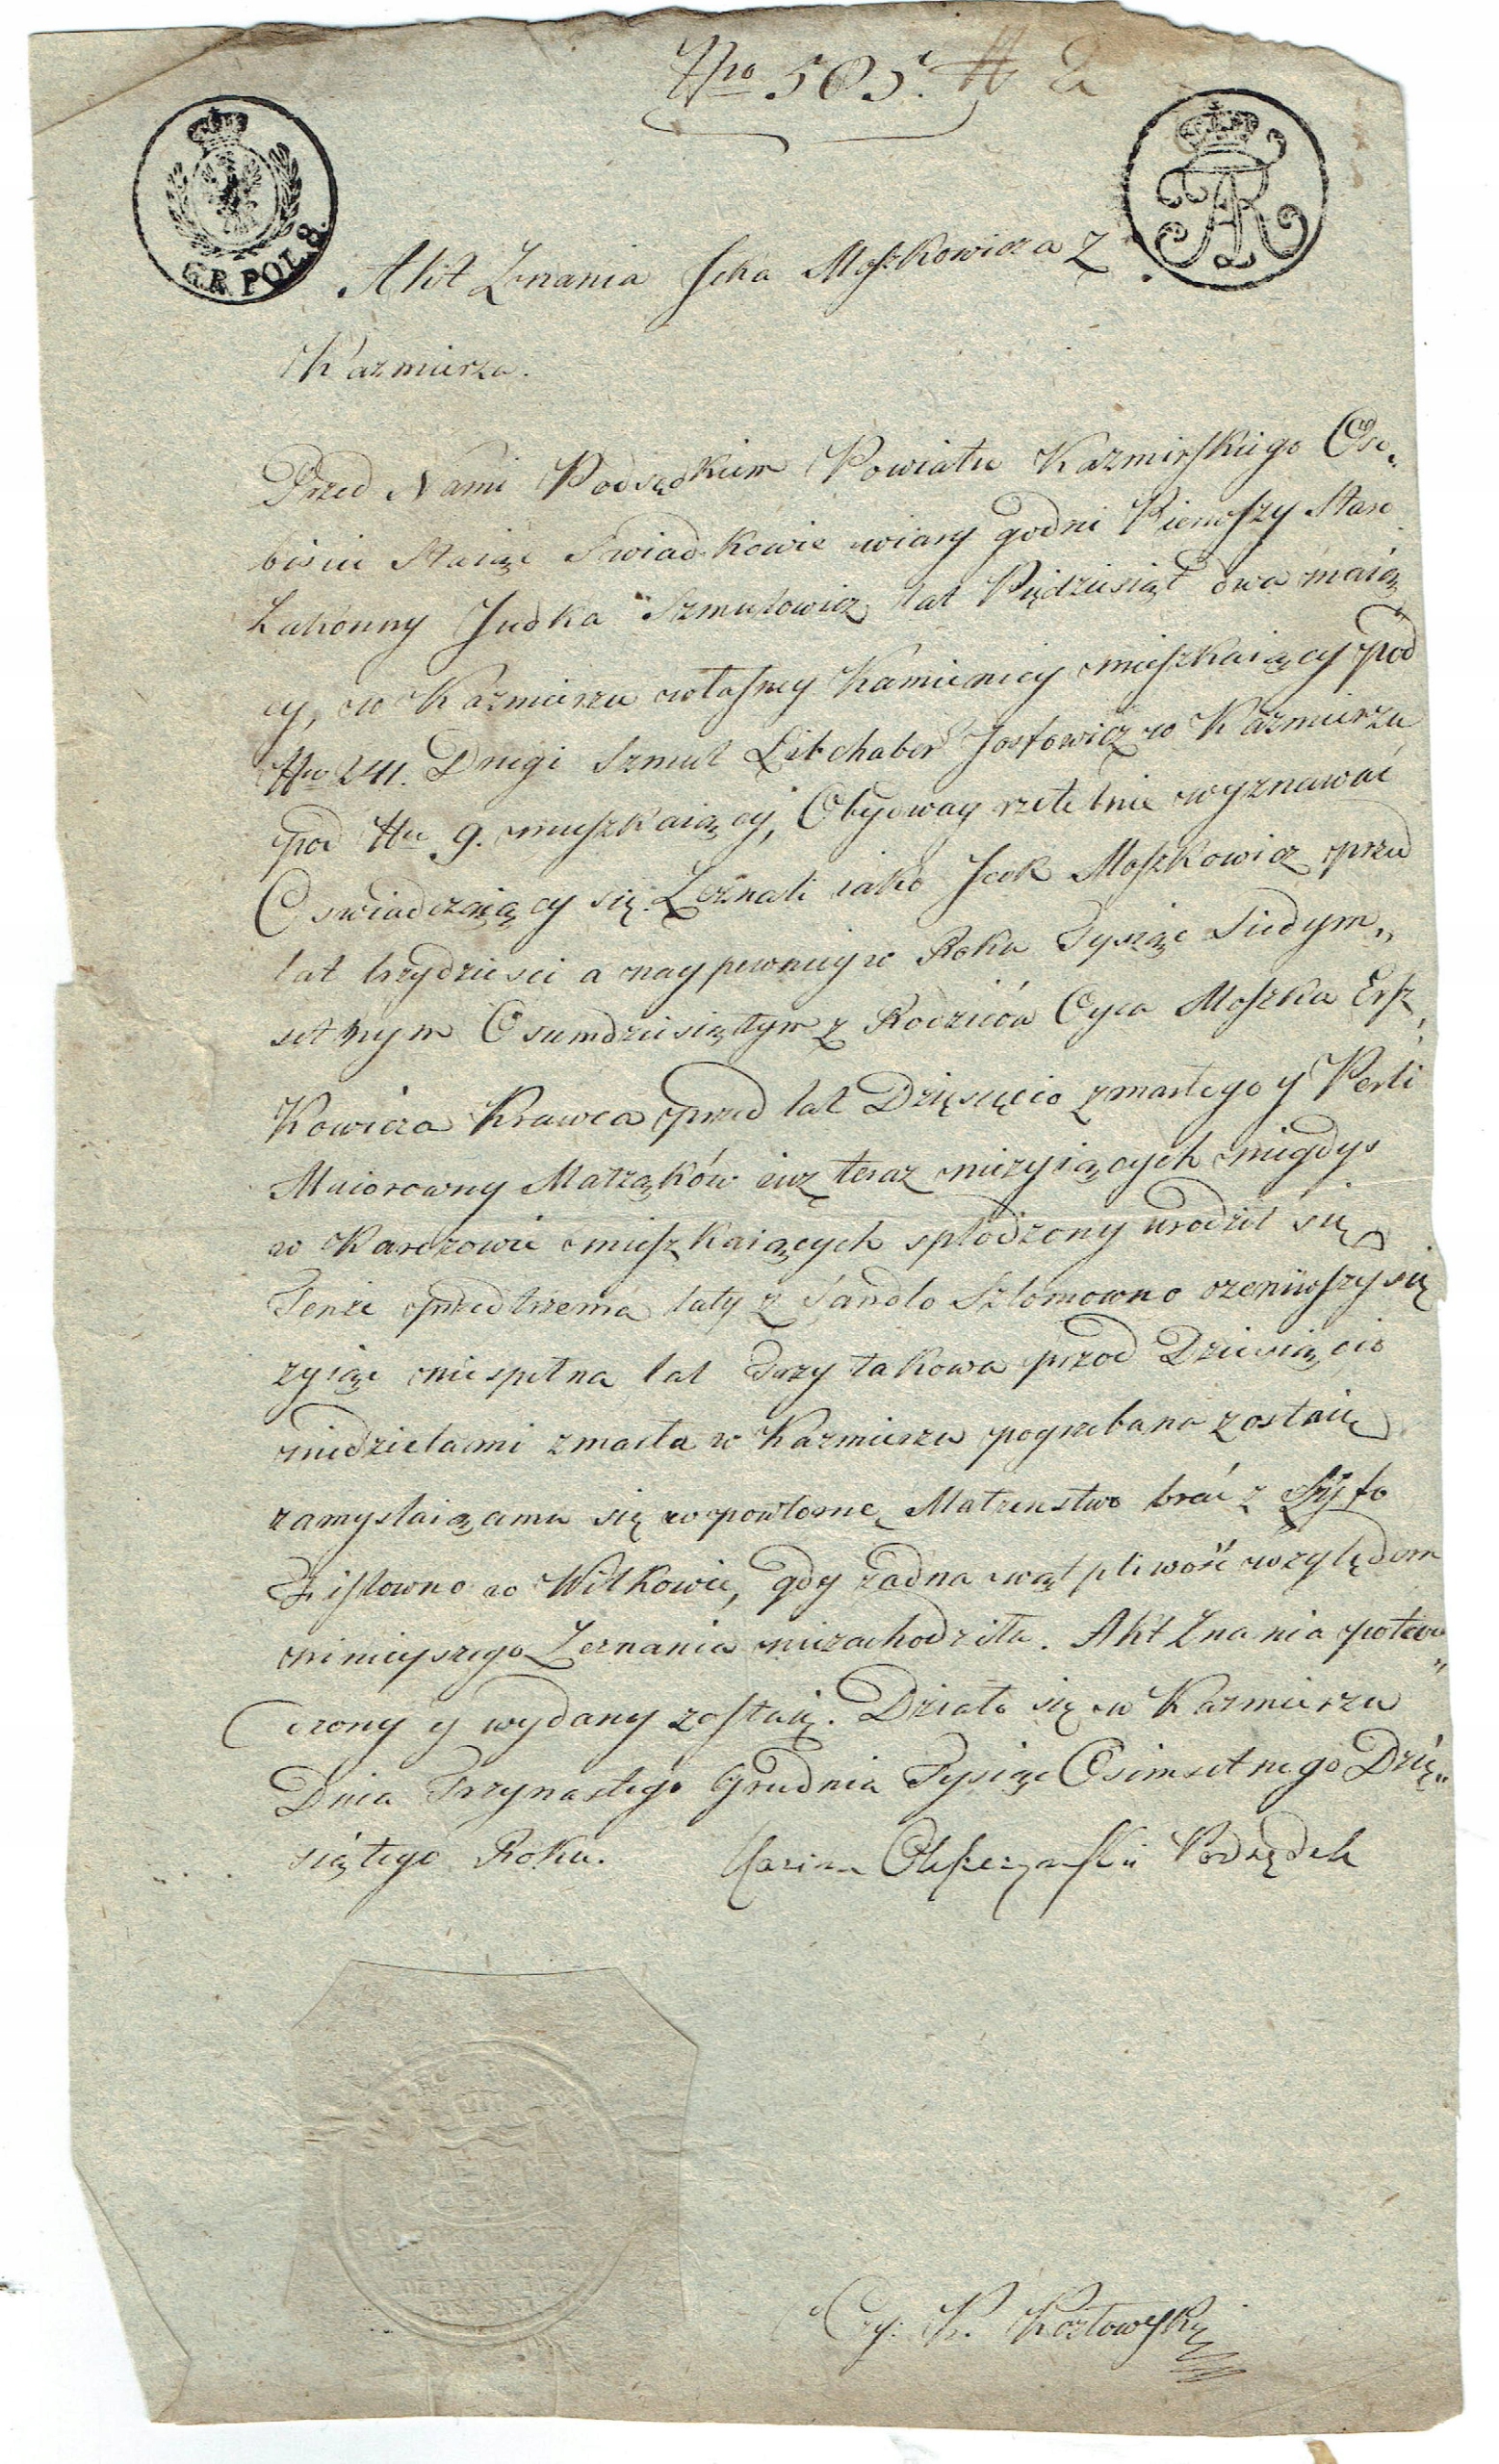 Nro 505.
GR. POL. 8.
AR
Akt Znania Jcka Moszkowicza z
Kazmierza.
Przed Nami Podsędkiem Powiatu Kazmirskiego Oso„
biscie Staiąc Swiadkowie wiary godni Pierwszy Staro
Zakonny Judka Szmulowicz lat Piędziesiąt dwa maią
cy, w Kazmierzu własney Kamienicy mieszkaiący pod
Nro 241. Drugi Szmul Libchaber Josfowicz w Kazmierzu
pod Nro 9. mieszkaiący, Obydway rzetelnie wyznawać
Oswiadczaiący się Zeznali iako Jcek Moszkowicz przed
lat trzydziesci a naypewniey w Roku Tysiąc Siedym„
setnym Osumdziesiątym z Rodziców Oyca Moszka Ersz
kowicza Krawca przed lat Dziesięcio zmarłego y Perli
Maiorowny Małząków iuz teraz niezyiących niegdys
w Karczowie mieszkaiących spłodzony urodził się
Tenze przed trzema laty z Sandlo Szlomowno ozeniwszy się
zyiąc niespełna lat Trzy takowa przed Dziesiącio
niedzielami zmarła w Kazmierzu pogrzebana zostaie
zamyslaiącemu się w powtorne Małzenstwo brać z
w Wilkowie, gdy zadna wątpliwość względem
ninieyszego Zeznania niezachodziła. Akt Znania potwier„
dzony y wydany zostaie. Działo się w Kazmierzu
Dnia Trzynastego Grudnia Tysiąc Osimsetnego Dzie„
siątego Roku. Podsędek
K. Kozłowski